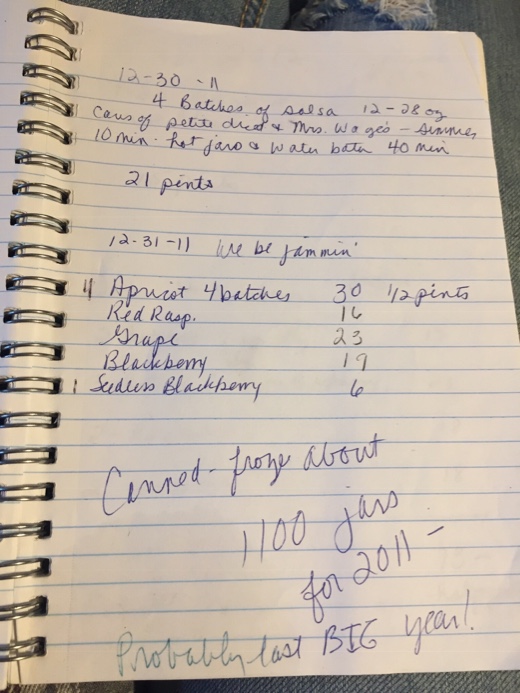 12-30-11
4 Batches of salsa 12-28 oz
cans of petite diced & Mrs. Wages - simmer
10 min. hot jars & water bath 40 min
21 pints
12-31-11 We be jammin'
4 Apricot 4 batches 30 1/2 pints
Red Rasp. 16
Grape 23
Blackberry 19
1 Seedless Blackberry 6
Canned - froze about
1100 jars
for 2011 -
Probably last BIG year!